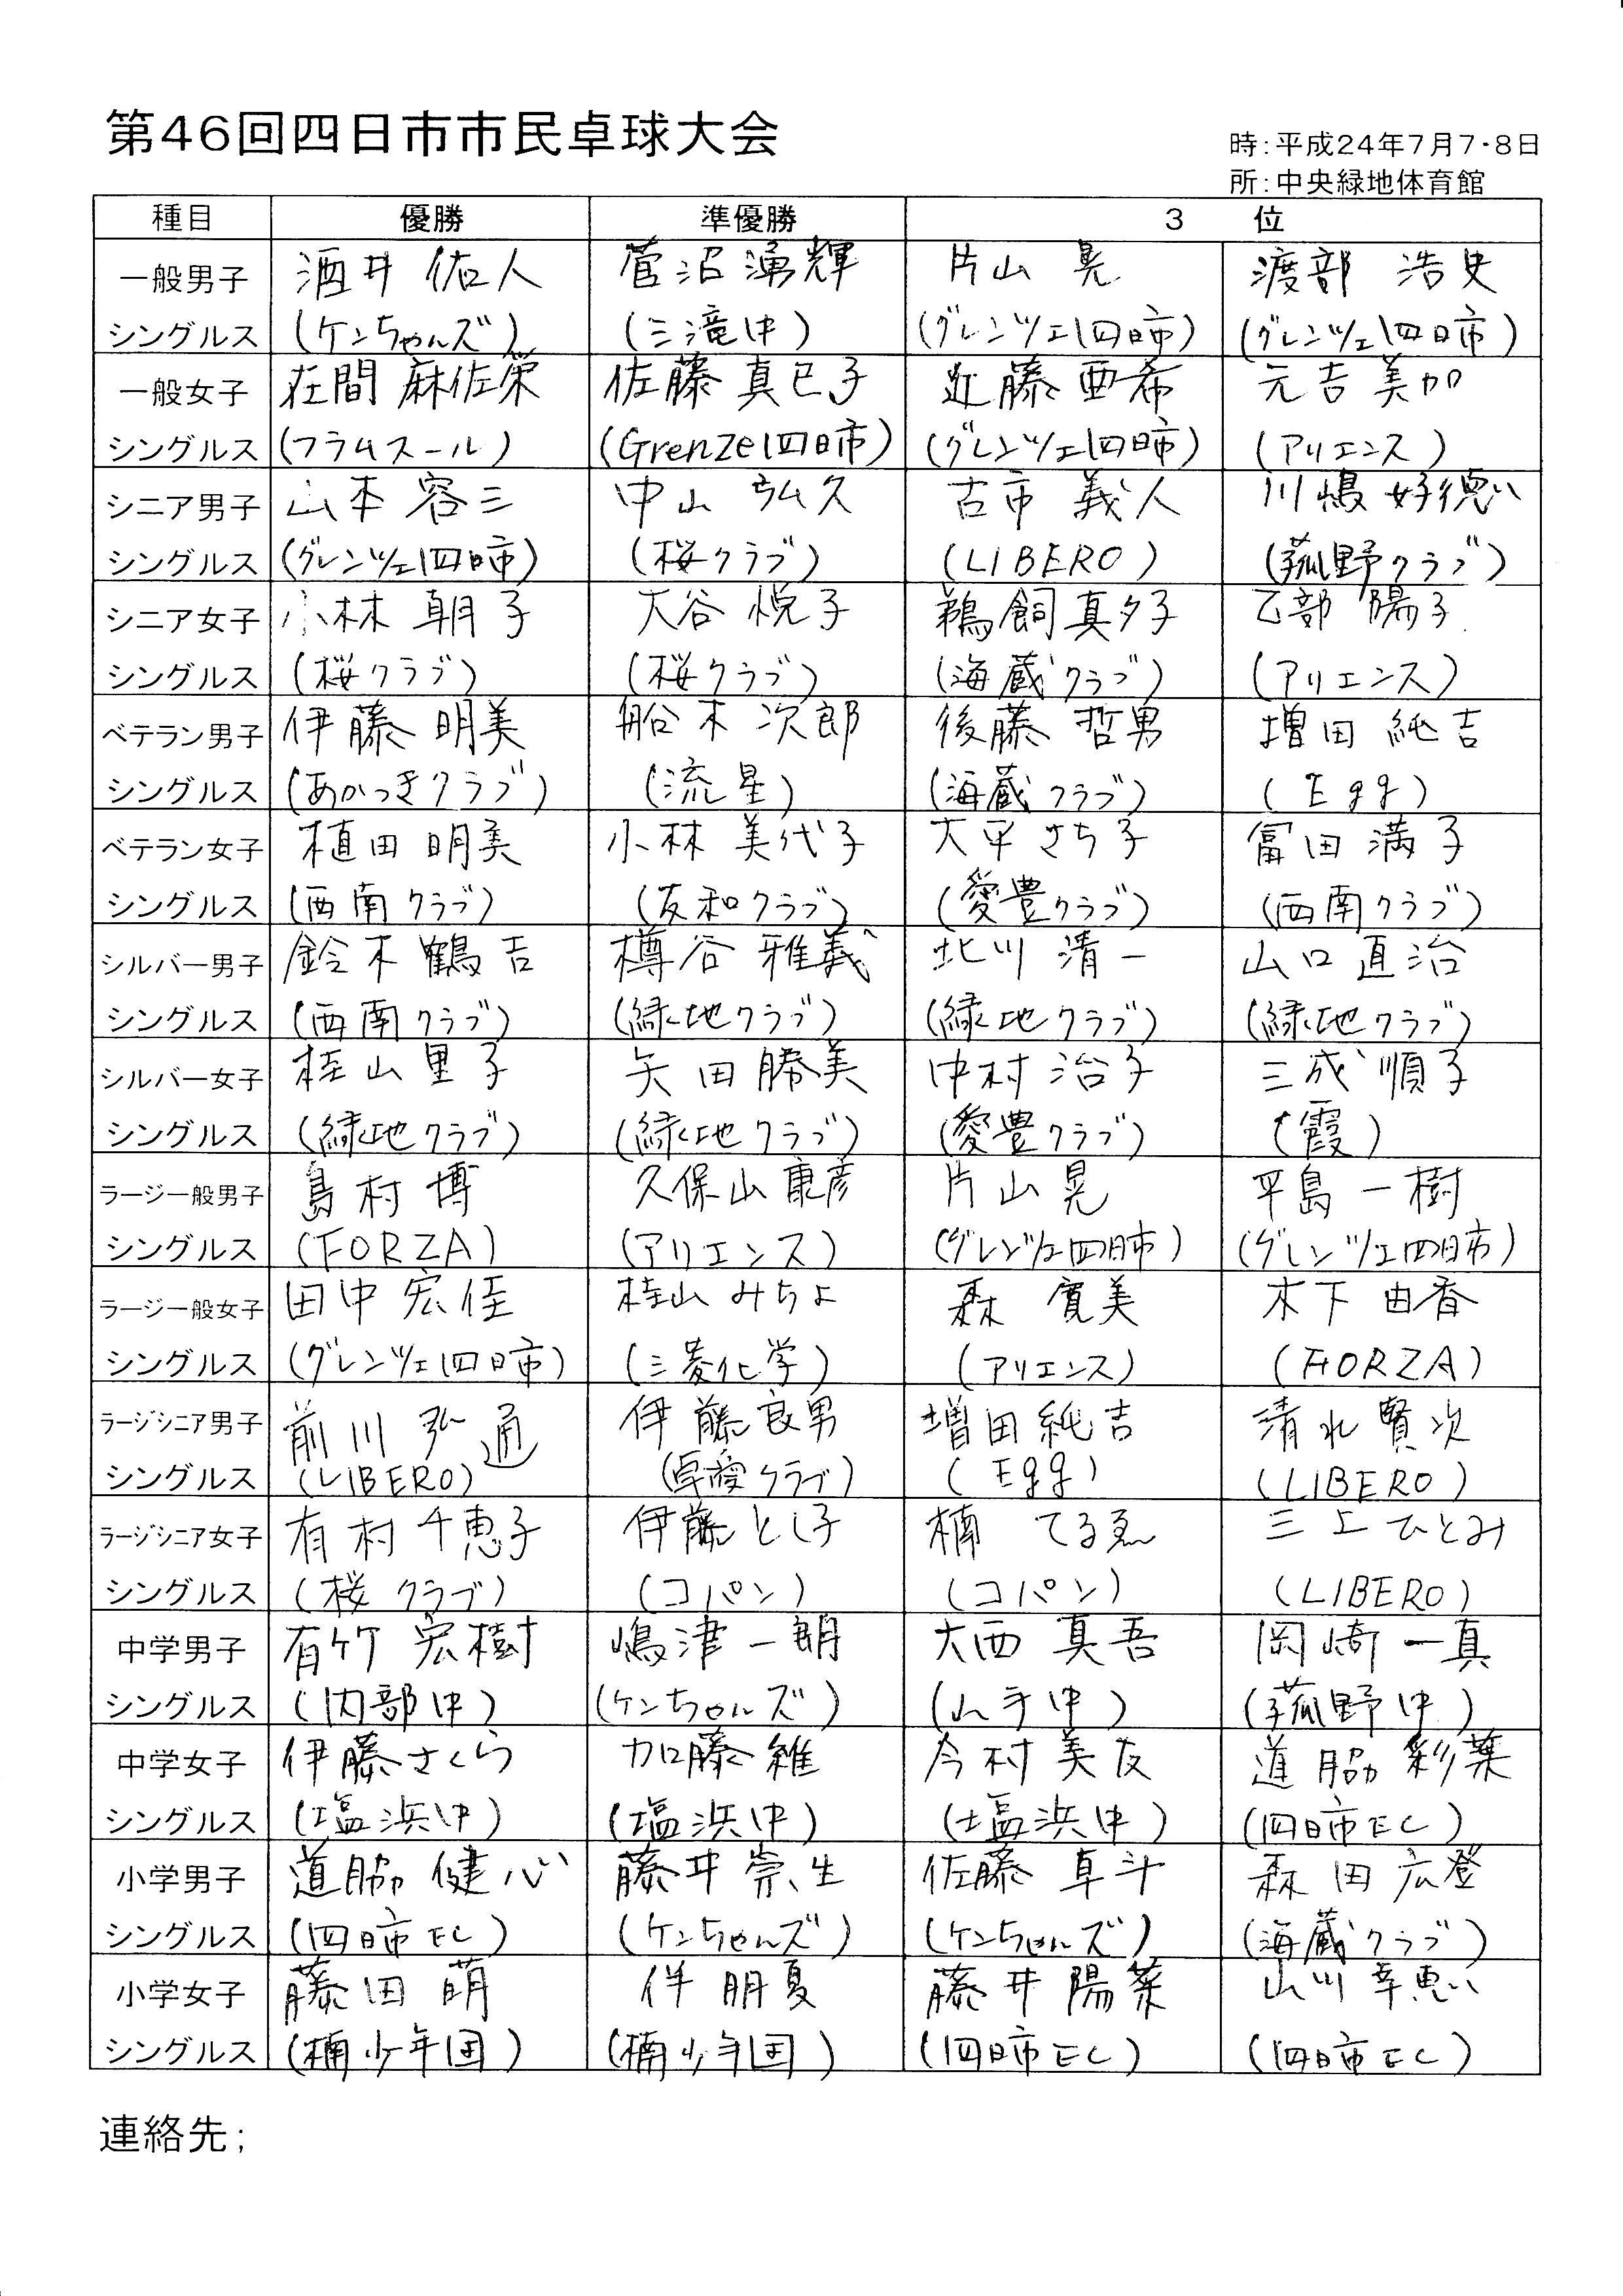 第46回四日市市民卓球大会
時:平成24年7月7・8日
所:中央緑地体育館
種目 優勝 準優勝 3 位
一般男子 酒井 佑人 菅沼 湧輝 片山 晃 渡部 浩史
シングルス (ケンちゃんズ) (三滝中) (グレンツェ四日市) (グレンツェ四日市)
一般女子 在間 麻佐栄 佐藤 真巳子 近藤 亜希 元吉 美加
シングルス (フラムスール) (Grenze四日市) (グレンツェ四日市) (アリエンス)
シニア男子 山本 容三 中山 弘久 古市 義人 川嶋 好徳
シングルス (グレンツェ四日市) (桜クラブ) (LIBERO) (菰野クラブ)
シニア女子 小林 朝子 大谷 悦子 鵜飼 真夕子 乙部 陽子
シングルス (桜クラブ) (桜クラブ) (海蔵クラブ) (アリエンス)
ベテラン男子 伊藤 明美 船木 次郎 後藤 哲男 増田 純吉
シングルス (あかつきクラブ) (流星) (海蔵クラブ) (Egg)
ベテラン女子 植田 明美 小林 美代子 大平 さち子 冨田 満子
シングルス (西南クラブ) (友和クラブ) (愛豊クラブ) (西南クラブ)
シルバー男子 鈴木 鶴吉 樽谷 雅義 北川 清一 山口 直治
シングルス (西南クラブ) (緑地クラブ) (緑地クラブ) (緑地クラブ)
シルバー女子 桂山 里子 矢田 勝美 中村 治子 三成 順子
シングルス (緑地クラブ) (緑地クラブ) (愛豊クラブ) (霞)
ラージ一般男子 島村 博 久保山 康彦 片山 晃 平島 一樹
シングルス (FORZA) (アリエンス) (グレンツェ四日市) (グレンツェ四日市)
ラージ一般女子 田中 宏佳 桂山 みちよ 森 寛美 木下 由香
シングルス (グレンツェ四日市) (三菱化学) (アリエンス) (FORZA)
ラージシニア男子 前川 弘通 伊藤 良男 増田 純吉 清水 賢次
シングルス (LIBERO) (卓愛クラブ) (Egg) (LIBERO)
ラージシニア女子 有村 千恵子 伊藤 とし子 楠 てるゑ 三上 ひとみ
シングルス (桜クラブ) (コパン) (コパン) (LIBERO)
中学男子 有竹 宏樹 嶋津 一朗 大西 真吾 岡崎 一真
シングルス (内部中) (ケンちゃんズ) (山手中) (菰野中)
中学女子 伊藤 さくら 加藤 雅 今村 美友 道脇 彩葉
シングルス (塩浜中) (塩浜中) (塩浜中) (四日市EC)
小学男子 道脇 健心 藤井 崇生 佐藤 卓斗 森田 広登
シングルス (四日市EC) (ケンちゃんズ) (ケンちゃんズ) (海蔵クラブ)
小学女子 藤田 萌 伴 朋夏 藤井 陽菜 山川 幸恵
シングルス (楠少年団) (楠少年団) (四日市EC) (四日市EC)
連絡先;